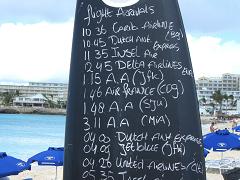 flight Arrivals
10 36 Carib Airline
10 45 Dutch Ant. Express
11 35 Insel Air
12 45 Delta Airlines
1 15 A.A (Jfk)
1 46 Air France (CDG)
1 48 A.A (SJU)
3 11 A.A (MIA)
04 00 Dutch Ant Express
04 09 Jetblue (Jfk)
04 26 United Airlines
05 35 Insel